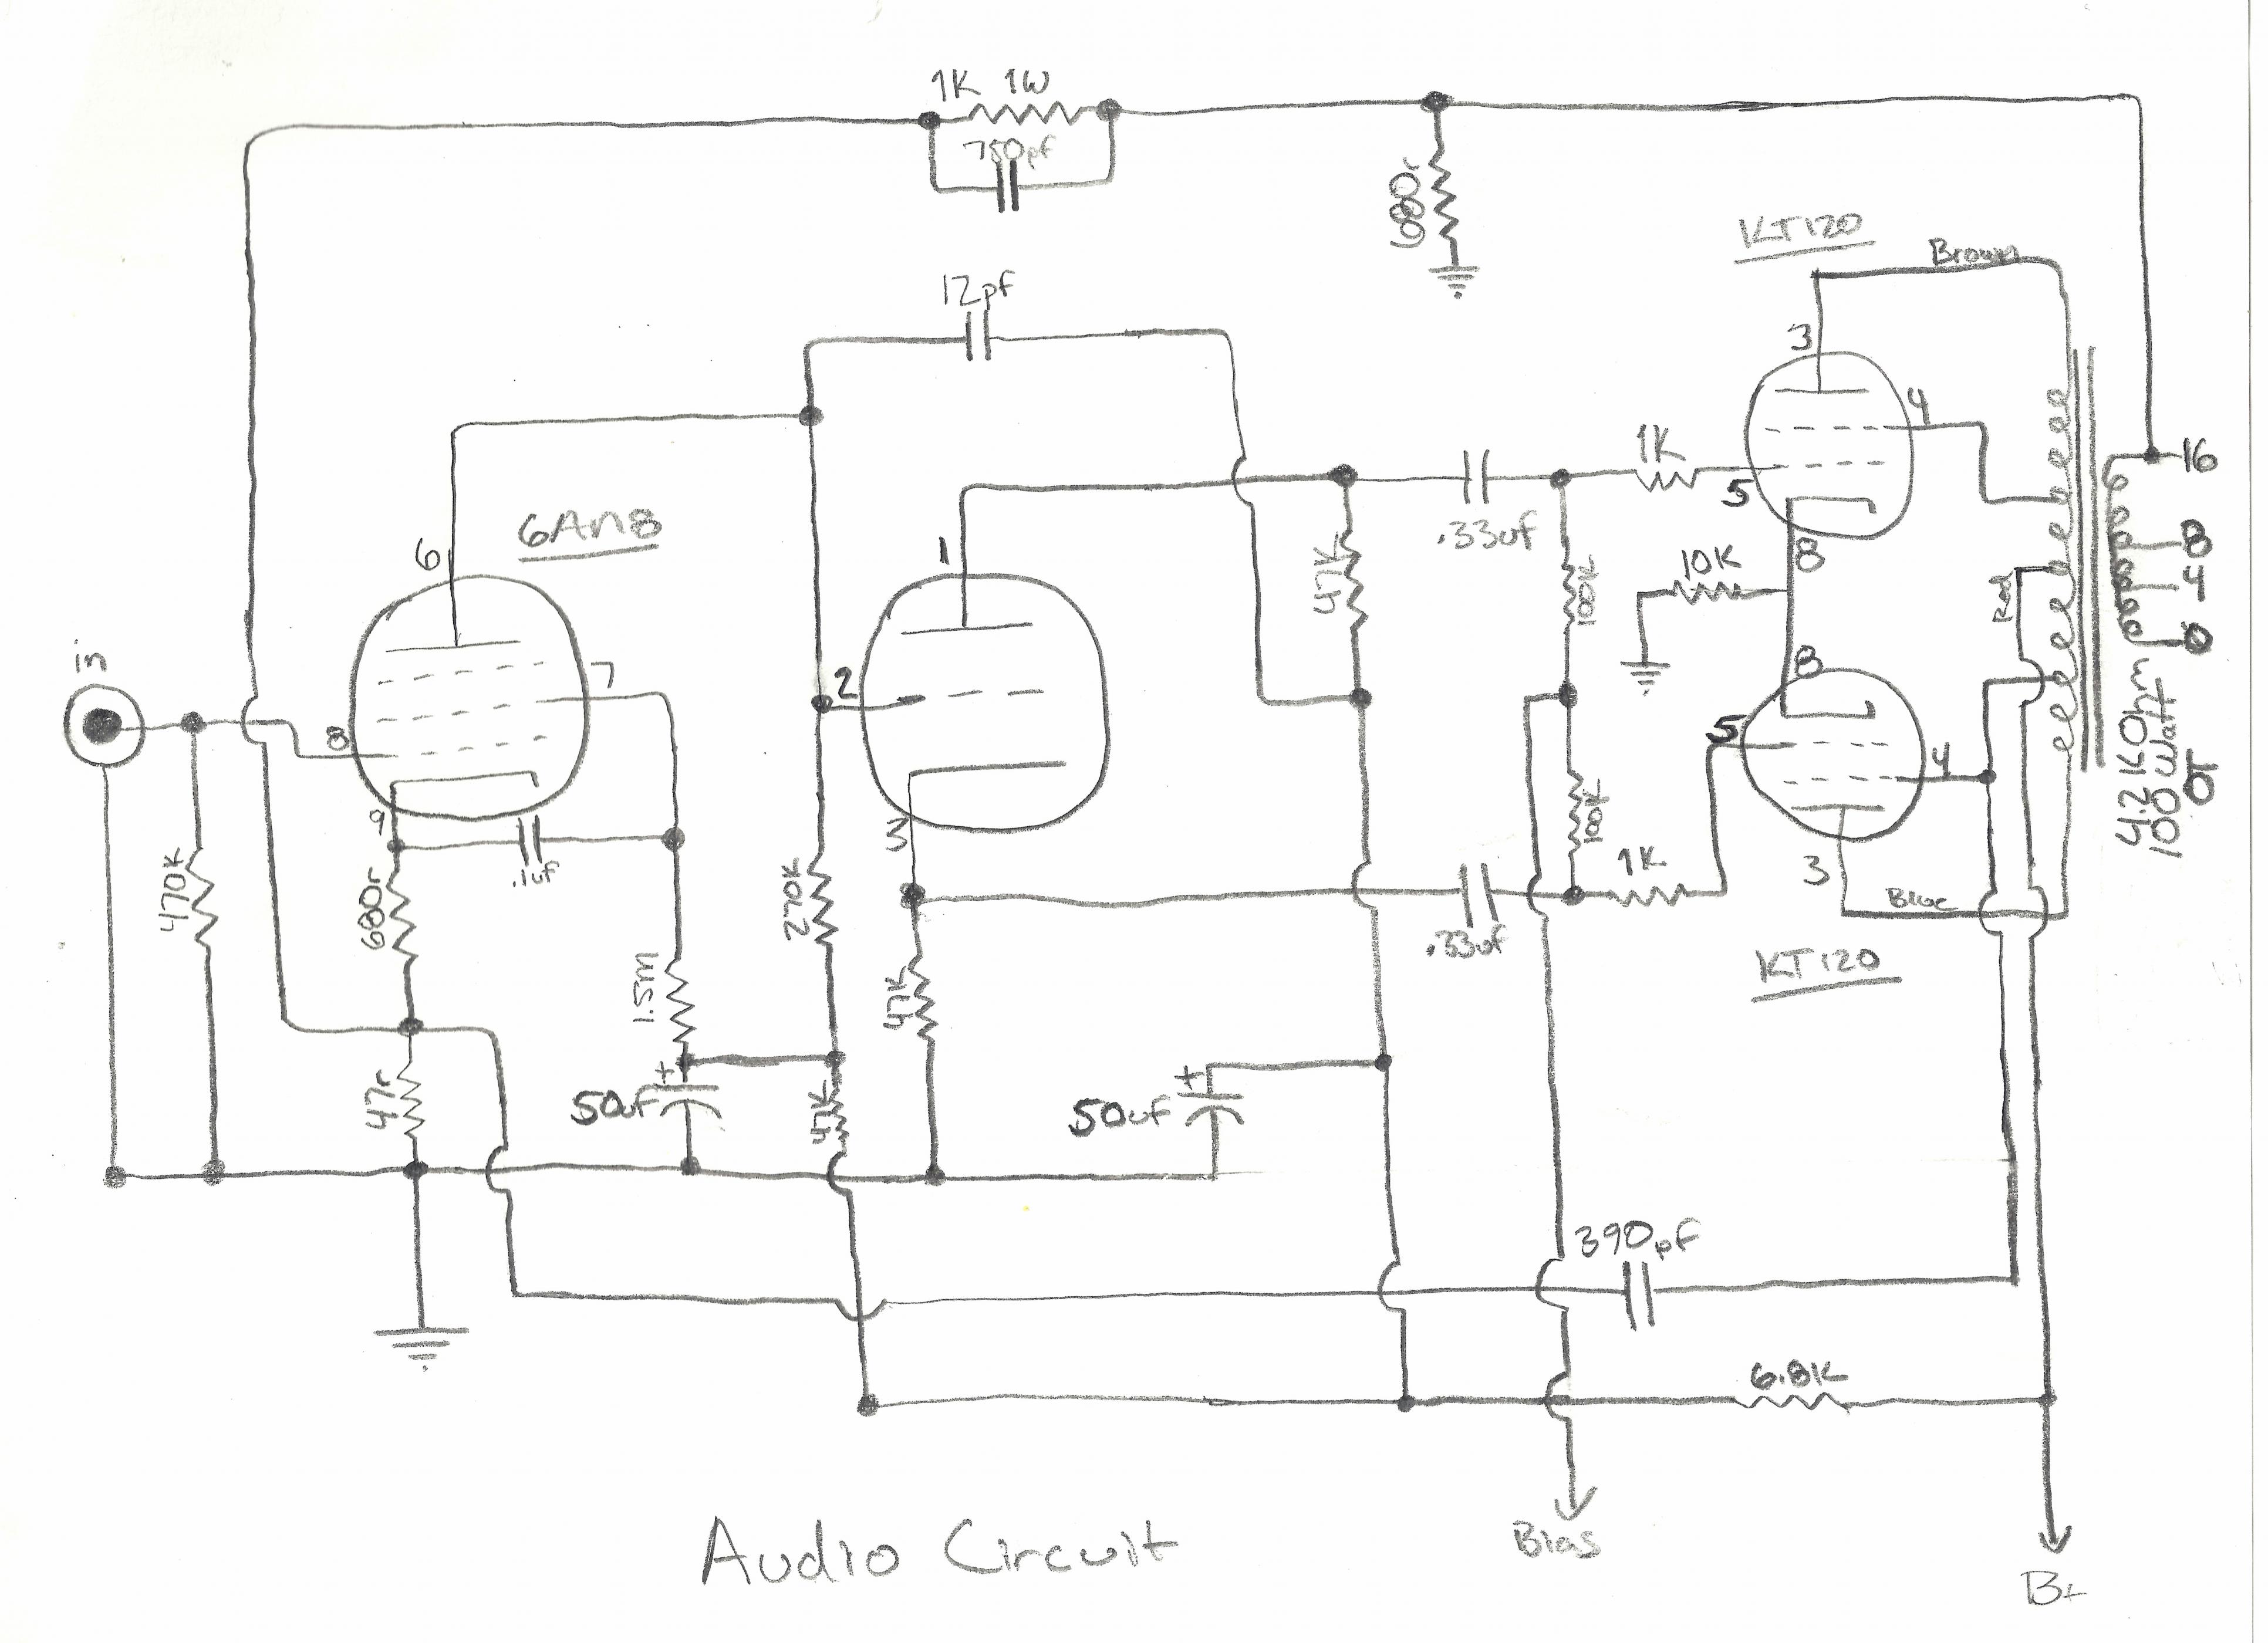 1K 1W
750pf
680r
KT120
Brown
12pf
3
4
1K
5
16
.33uf
8
6An8
6
1
47K
100K
10K
8
4
Red
0
in
7
2
8
8
5
4
4.2KOhm
100 Watt
OT
9
.1uf
3
100K
1K
3
470K
680r
270K
Blue
.33uf
KT120
1.5m
47K
47r
+
50uf
47K
+
50uf
390pf
6.8K
Audio Circuit
Bias
B+